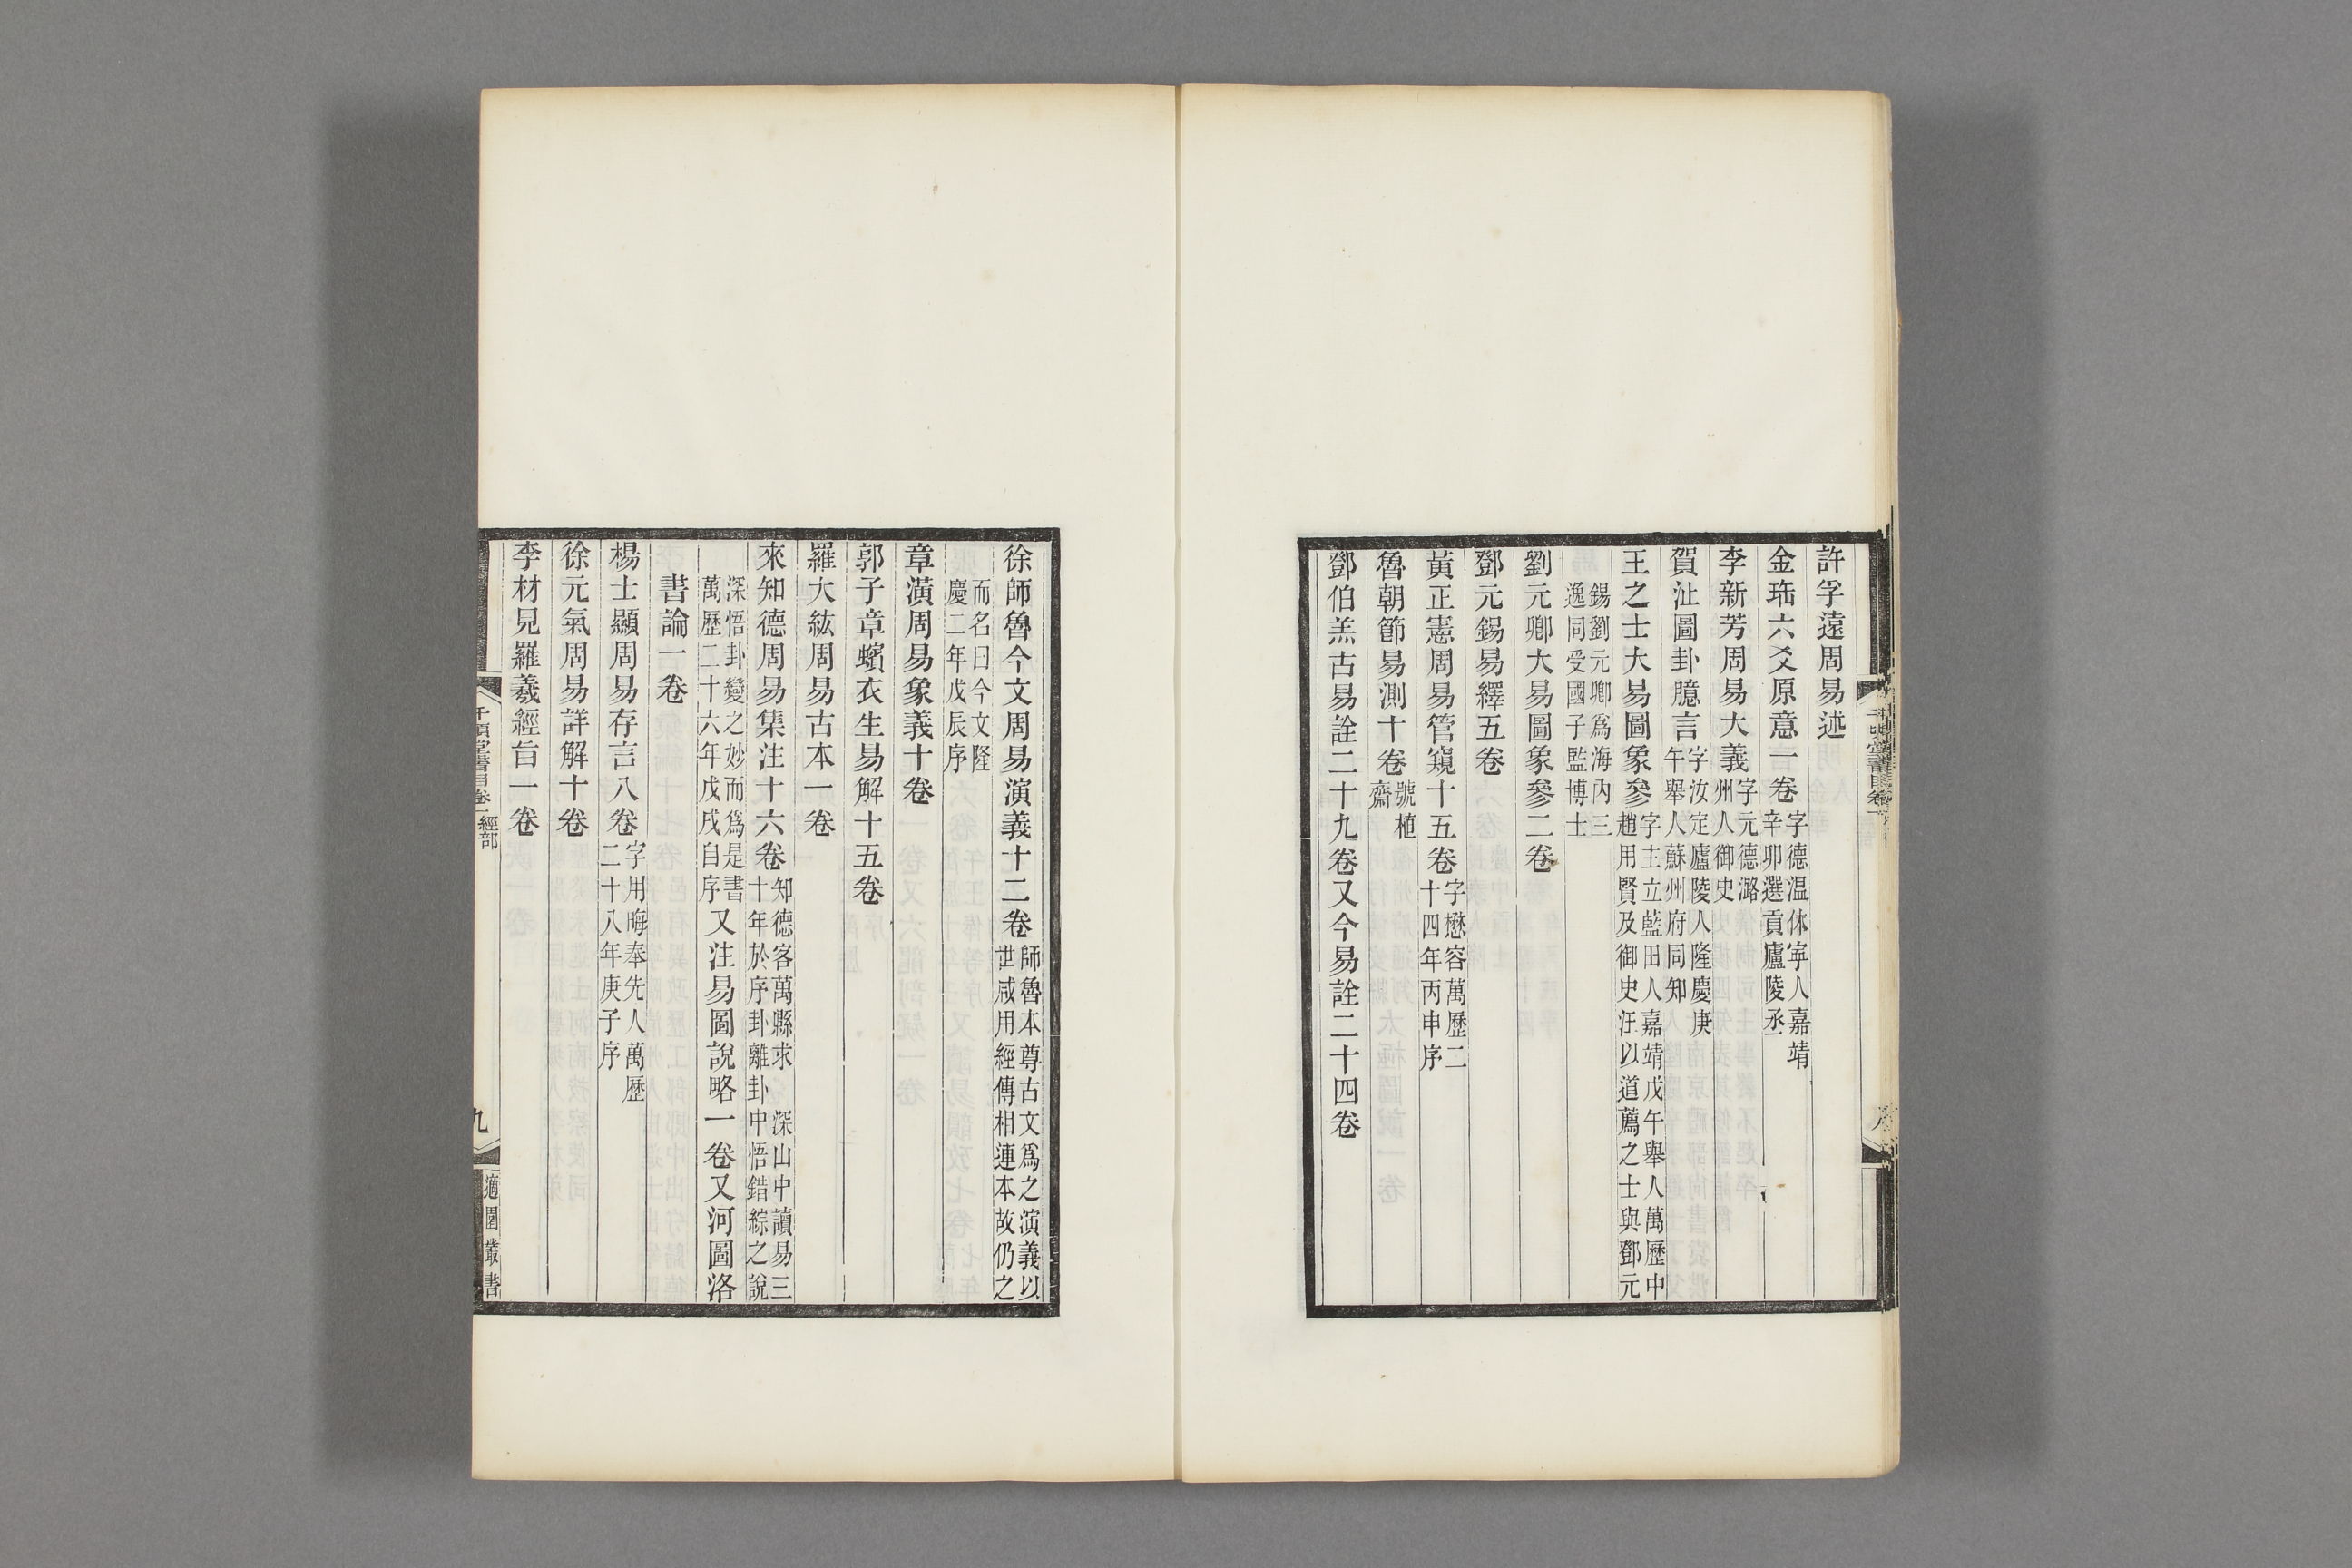 許孚遠周易述
金瑤六爻原意一卷字德温休寧人嘉靖辛卯選貢廬陵丞
李新芳周易大義字元德潞州人御史
賀沚圖卦臆言字汝定廬陵人隆慶庚午舉人蘇州府同知
王之士大易圖象參字主立藍田人嘉靖戊午舉人萬歷中趙用賢及御史汪以道薦之士與鄧元
錫劉元卿爲海內三逸同受國子監博士
劉元卿大易圖象參二卷
鄧元錫易繹五卷
黃正憲周易管窺十五卷字懋容萬歷二十四年丙申序
魯朝節易測十卷號植齋
鄧伯羔古易詮二十九卷又今易詮二十四卷
徐師魯今文周易演義十二卷師魯本尊古文爲之演義以世咸用經傳相連本故仍之
而名曰今文隆慶二年戊辰序
章潢周易象義十卷
郭子章蠙衣生易解十五卷
羅大紘周易古本一卷
來知德周易集注十六卷知德客萬縣求深山中讀易三十年於序卦離卦中悟錯綜之說
深悟卦變之妙而爲是書萬歷二十六年戊戌自序又注易圖說略一卷又河圖洛
書論一卷
楊士顯周易存言八卷字用晦奉先人萬歷二十八年庚子序
徐元氣周易詳解十卷
李材見羅羲經旨一卷
千頃堂書目卷一經部
九
適園叢書